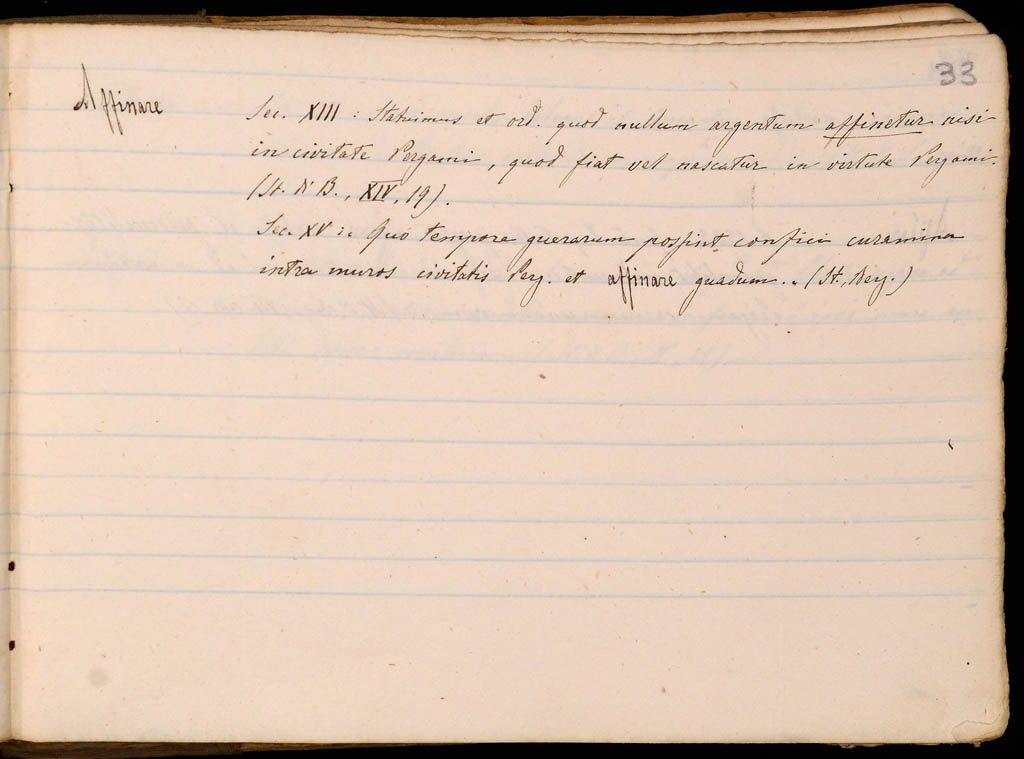 33
Affinare
Sec. XIII : Statuimus et ord. quod nullum argentum affinetur nisi
in civitate Pergami, quod fiat vel nascatur in virtute Pergami.
(St. di B., XIV, 19).
Sec. XV :. Quo tempore querarum possint confici curamina
intra muros civitatis Perg. et affinare guadum.. (St., Berg.)